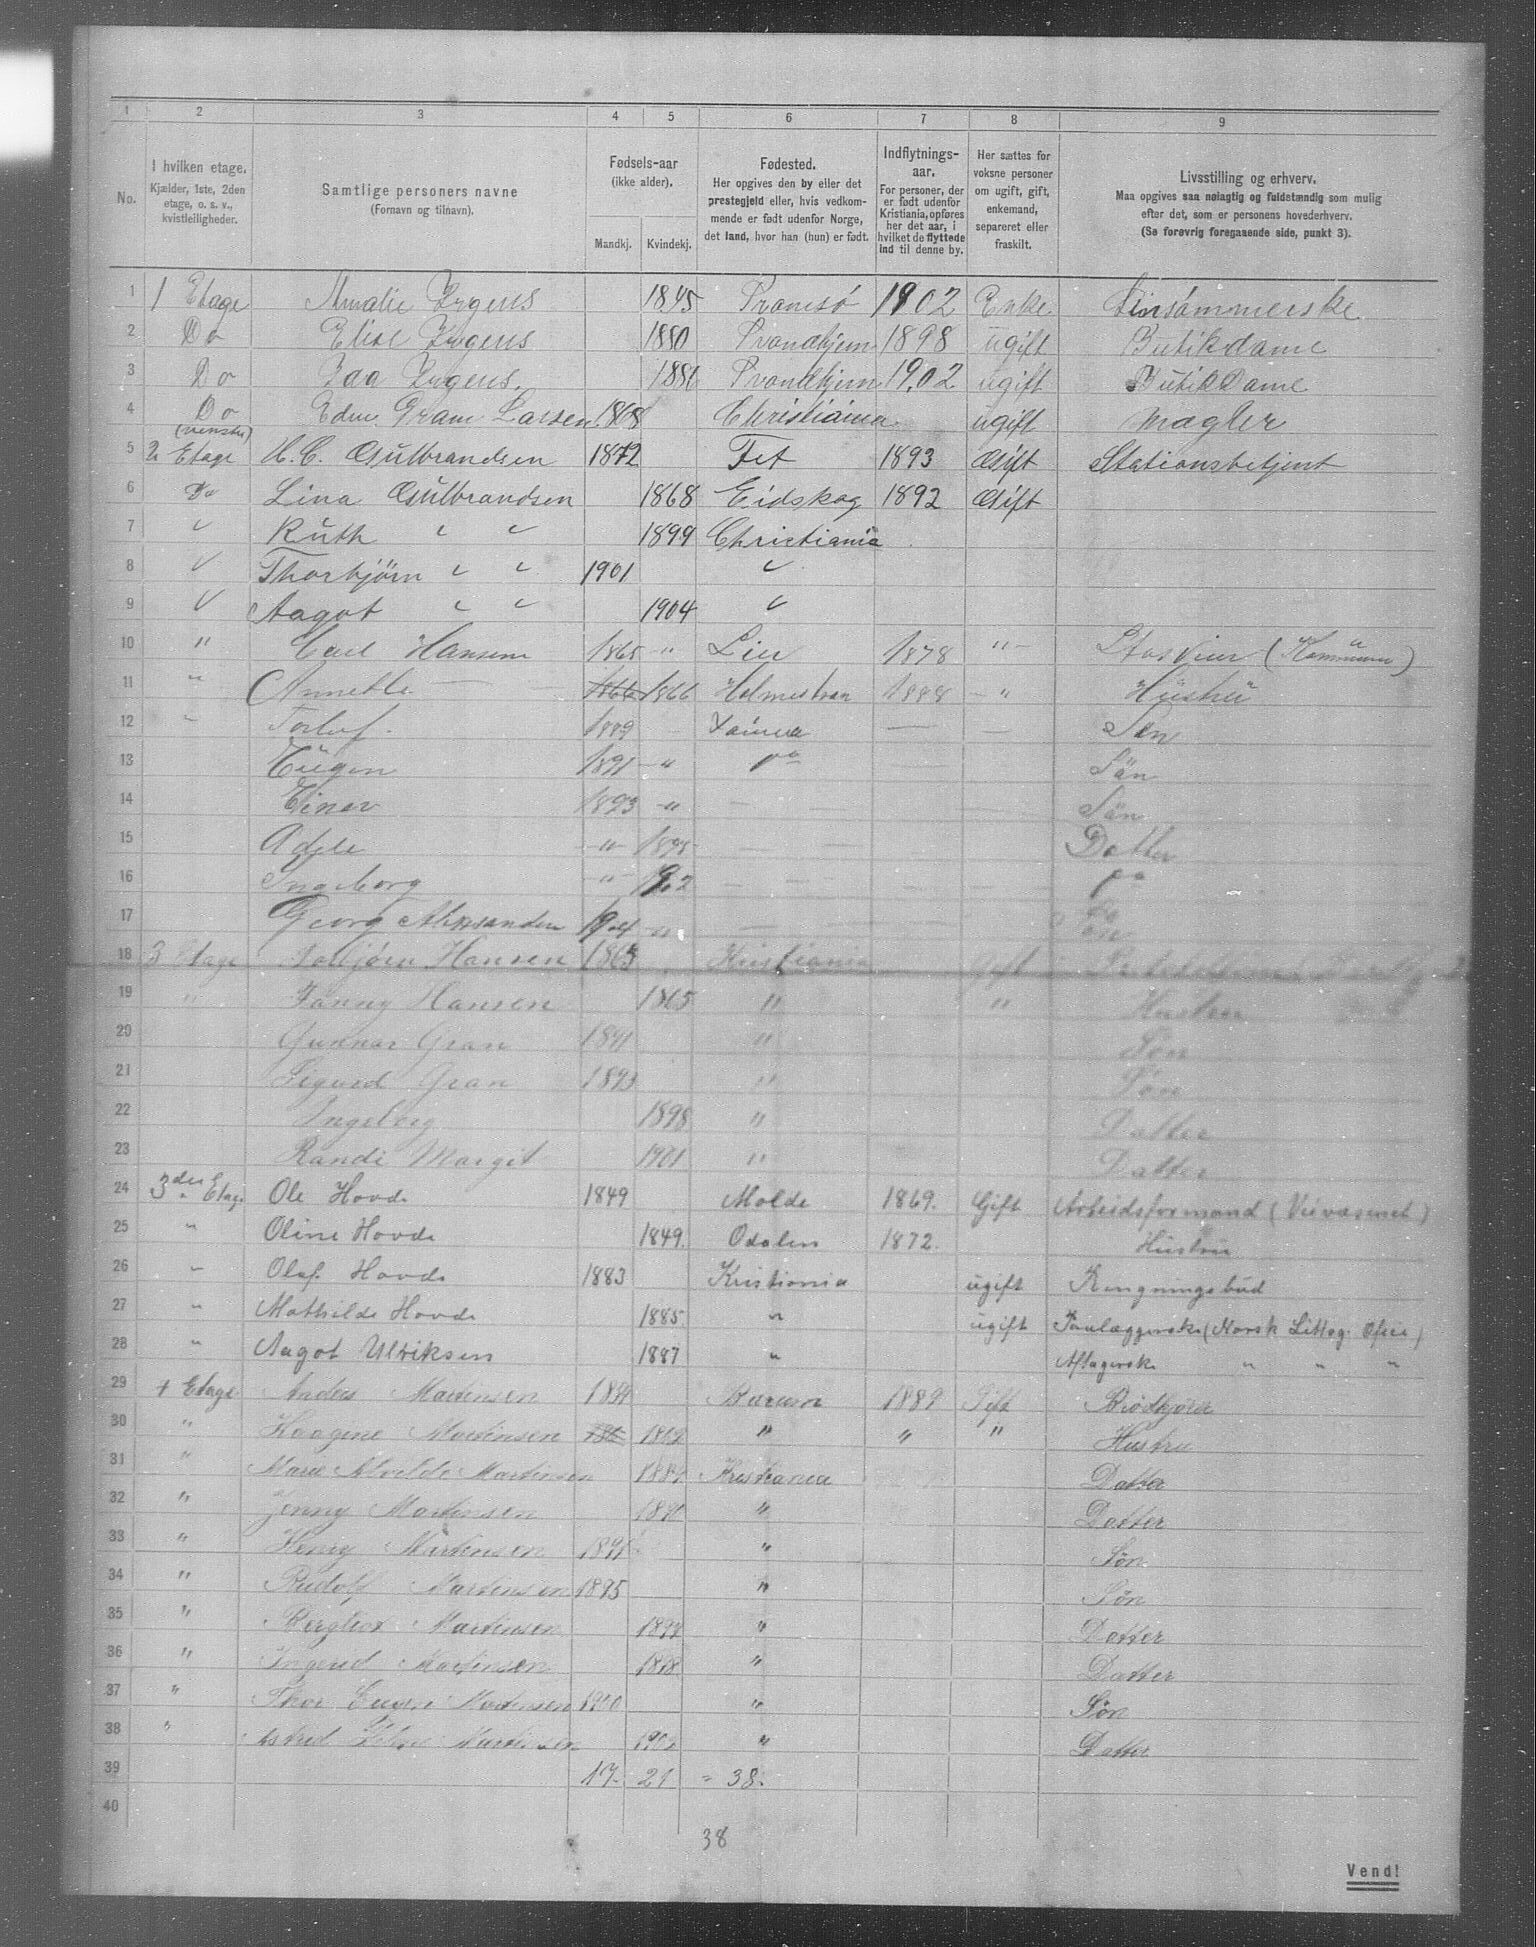 1 2 3 4 5 6 7 8 9
No.
I hvilken etage.
Kjælder, 1ste, 2den
etage, o. s. v.,
kvistleiligheder.
Samtlige personers navne
(Fornavn og tilnavn).
Fødsels-aar
(ikke alder).
Mandkj. Kvindekj.
Fødested.
Her opgives den by eller det
prestegjeld eller, hvis vedkom-
mende er født udenfor Norge,
det land, hvor han (hun) er født.
Indflytnings-
aar.
For personer, der
er født udenfor
Kristiania, opføres
her det aar, i
hvilket de flyttede
ind til denne by.
Her sættes for
voksne personer
om ugift, gift,
enkemand,
separeret eller
fraskilt.
Livsstilling og erhverv.
Maa opgives saa nøiagtig og fuldstændig som mulig
efter det, som er personens hovederhverv.
(Se forøvrig foregaaende side, punkt 3).
1 1 Etage Amalie Irgens 1845 Tromsö 1902 Enke Linsömmerske
2 Do Elise Irgens 1880 Trondhjem 1898 ugift Butikdame
3 Do Irgens 1902 ugift Butikdame
4 Do Edm. Gram Larsen 1868 Christiania ugift Mægler
(venstre)
5 2 Etage H. C. Gulbrandsen 1872 Fet 1893 Gift Stationsbetjent
6 Do Lina Gulbrandsen 1868 Eidskog 1892 Gift
7 " Ruth " " 1899 Christiania
8 " Thorbjörn " " 1901 "
9 " Aagot " " 1904 "
10 " Carl Hansen 1865 " Lier 1878 "
11 " 1866 1866 Holmestran 1888 " Hustru
12 " 1889 Sön
13 Eugen 1891 " Do Sön
14 Einar 1893 " Sön
15 " 1895 Datter
16 Ingeborg " 1902 Do
17 Georg Aleksander 1904 "
18 3 Etage Hansen Kristiania Gift
19 " Fanny Hansen 1865 " " Hustru
20 Gunnar Gran 1891 " Søn
21 Sigurd Gran 1893 " Søn
22 Ingeborg 1898 " Datter
23 Randi Margit 1901 " Datter
24 3die Etage Ole Hovde 1849 Molde 1869. Gift Arbeidsformand (Veivæsenet)
25 " Oline Hovde 1849. Odalen 1872. Hustru
26 " Olaf Hovde 1883 Kristiania ugift Regningsbud
27 " Mathilde Hovde 1885 " ugift Paalæggerske (Norsk Littog. Ofici)
28 " Aagot Ulriksen 1887 " Aftagerske " " "
29 4 Etage Anders Martinsen Bærum 1889 Gift Brødkjører
30 " Martinsen 1862 " " " Hustru
31 " Marie Martinsen Kristiania Datter
32 " Jenny Martinsen " Datter
33 " Henry Martinsen " Søn
34 " Rudolf Martinsen 1895 " Søn
35 " Bergliot Martinsen " Datter
36 " Ingerid Martinsen 1898 " Datter
37 " Thor Martinsen 1900 " Søn
38 " Astrid Martinsen 1902 " Datter
39 17. 21 = 38.
40
38
Vend!